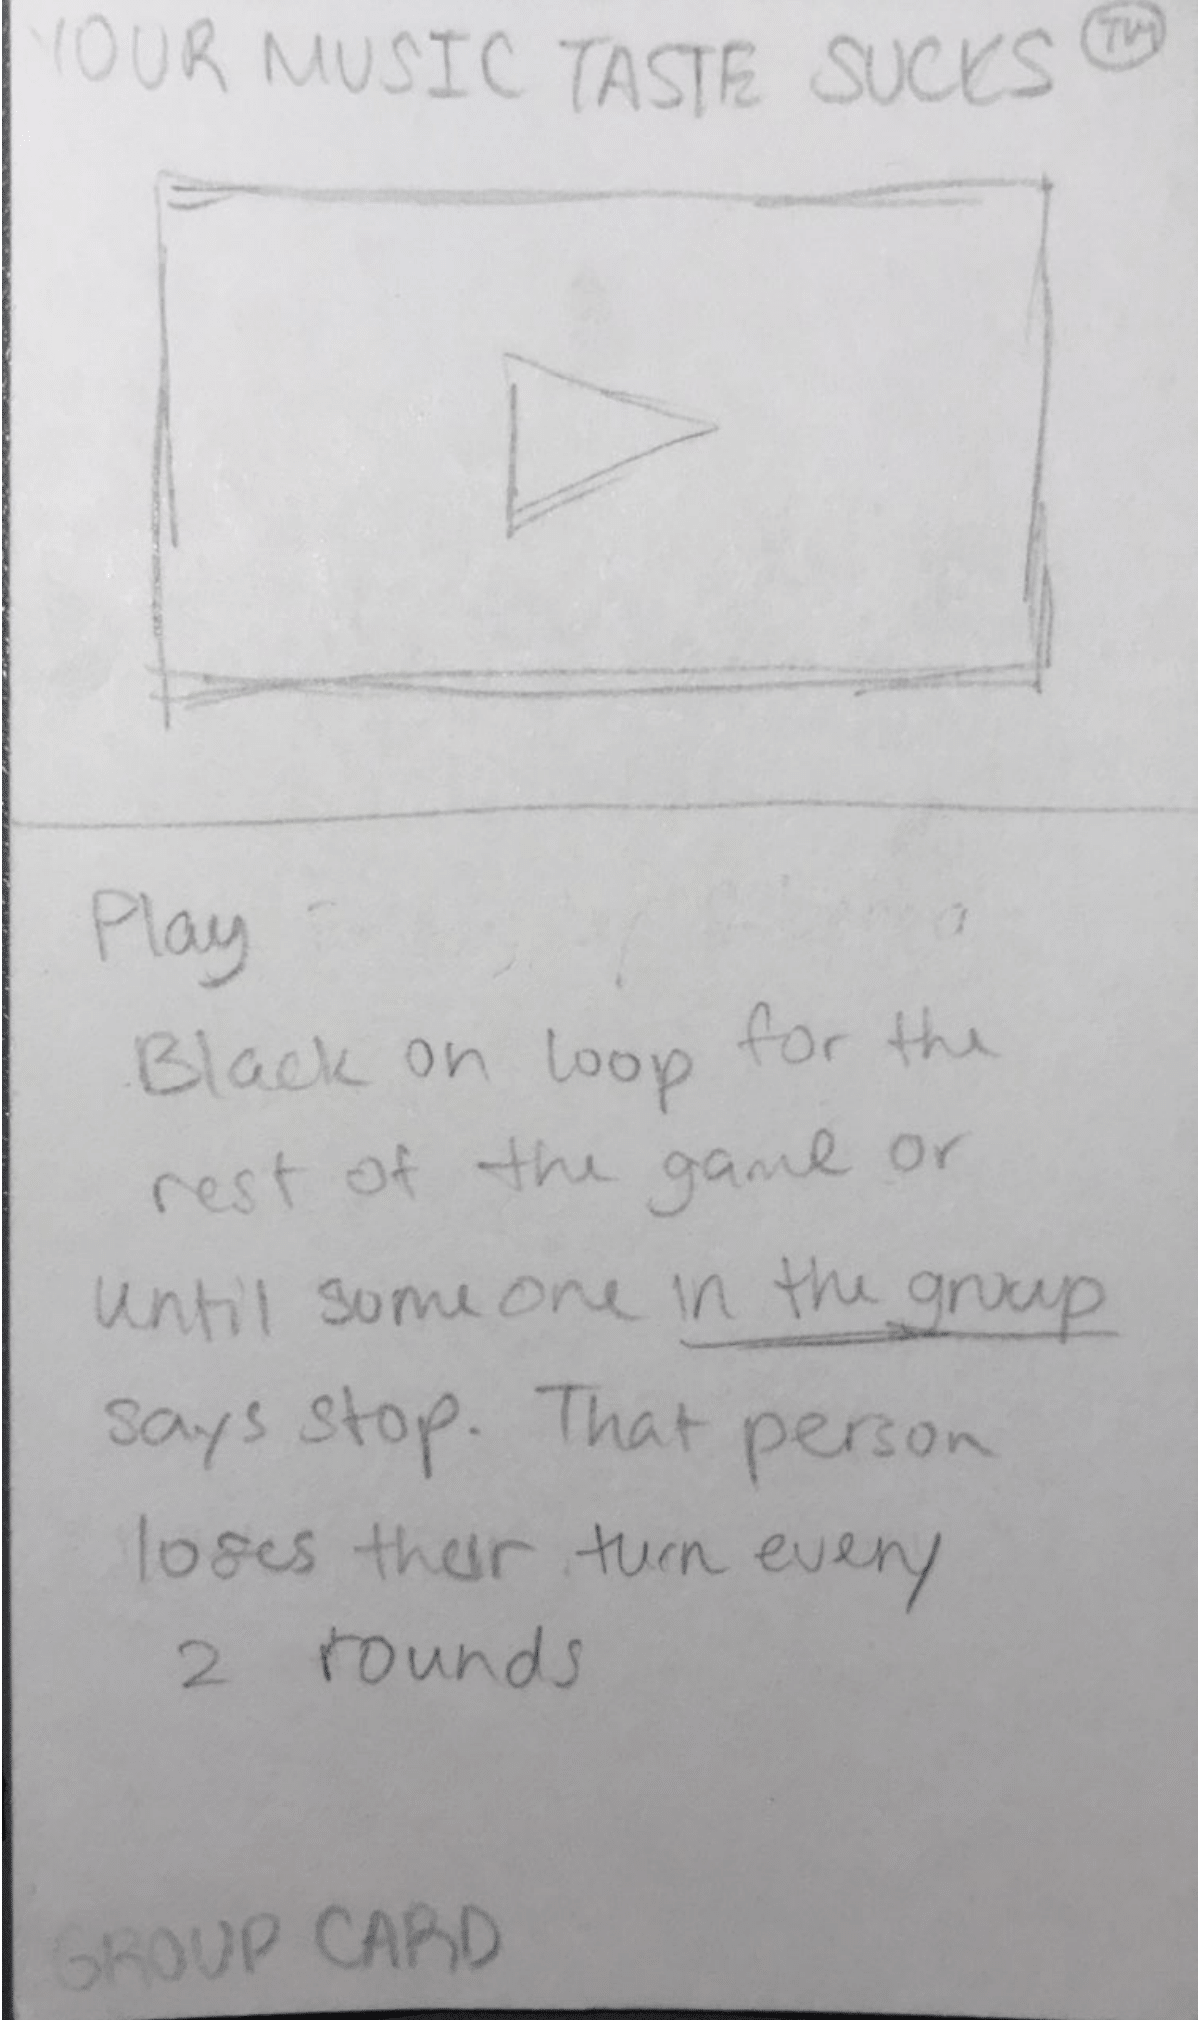 YOUR MUSIC TASTE SUCKS TM
Play
Black on loop for the
rest of the game or
until someone in the group
says stop. That person
loses their turn every
2 rounds
GROUP CARD